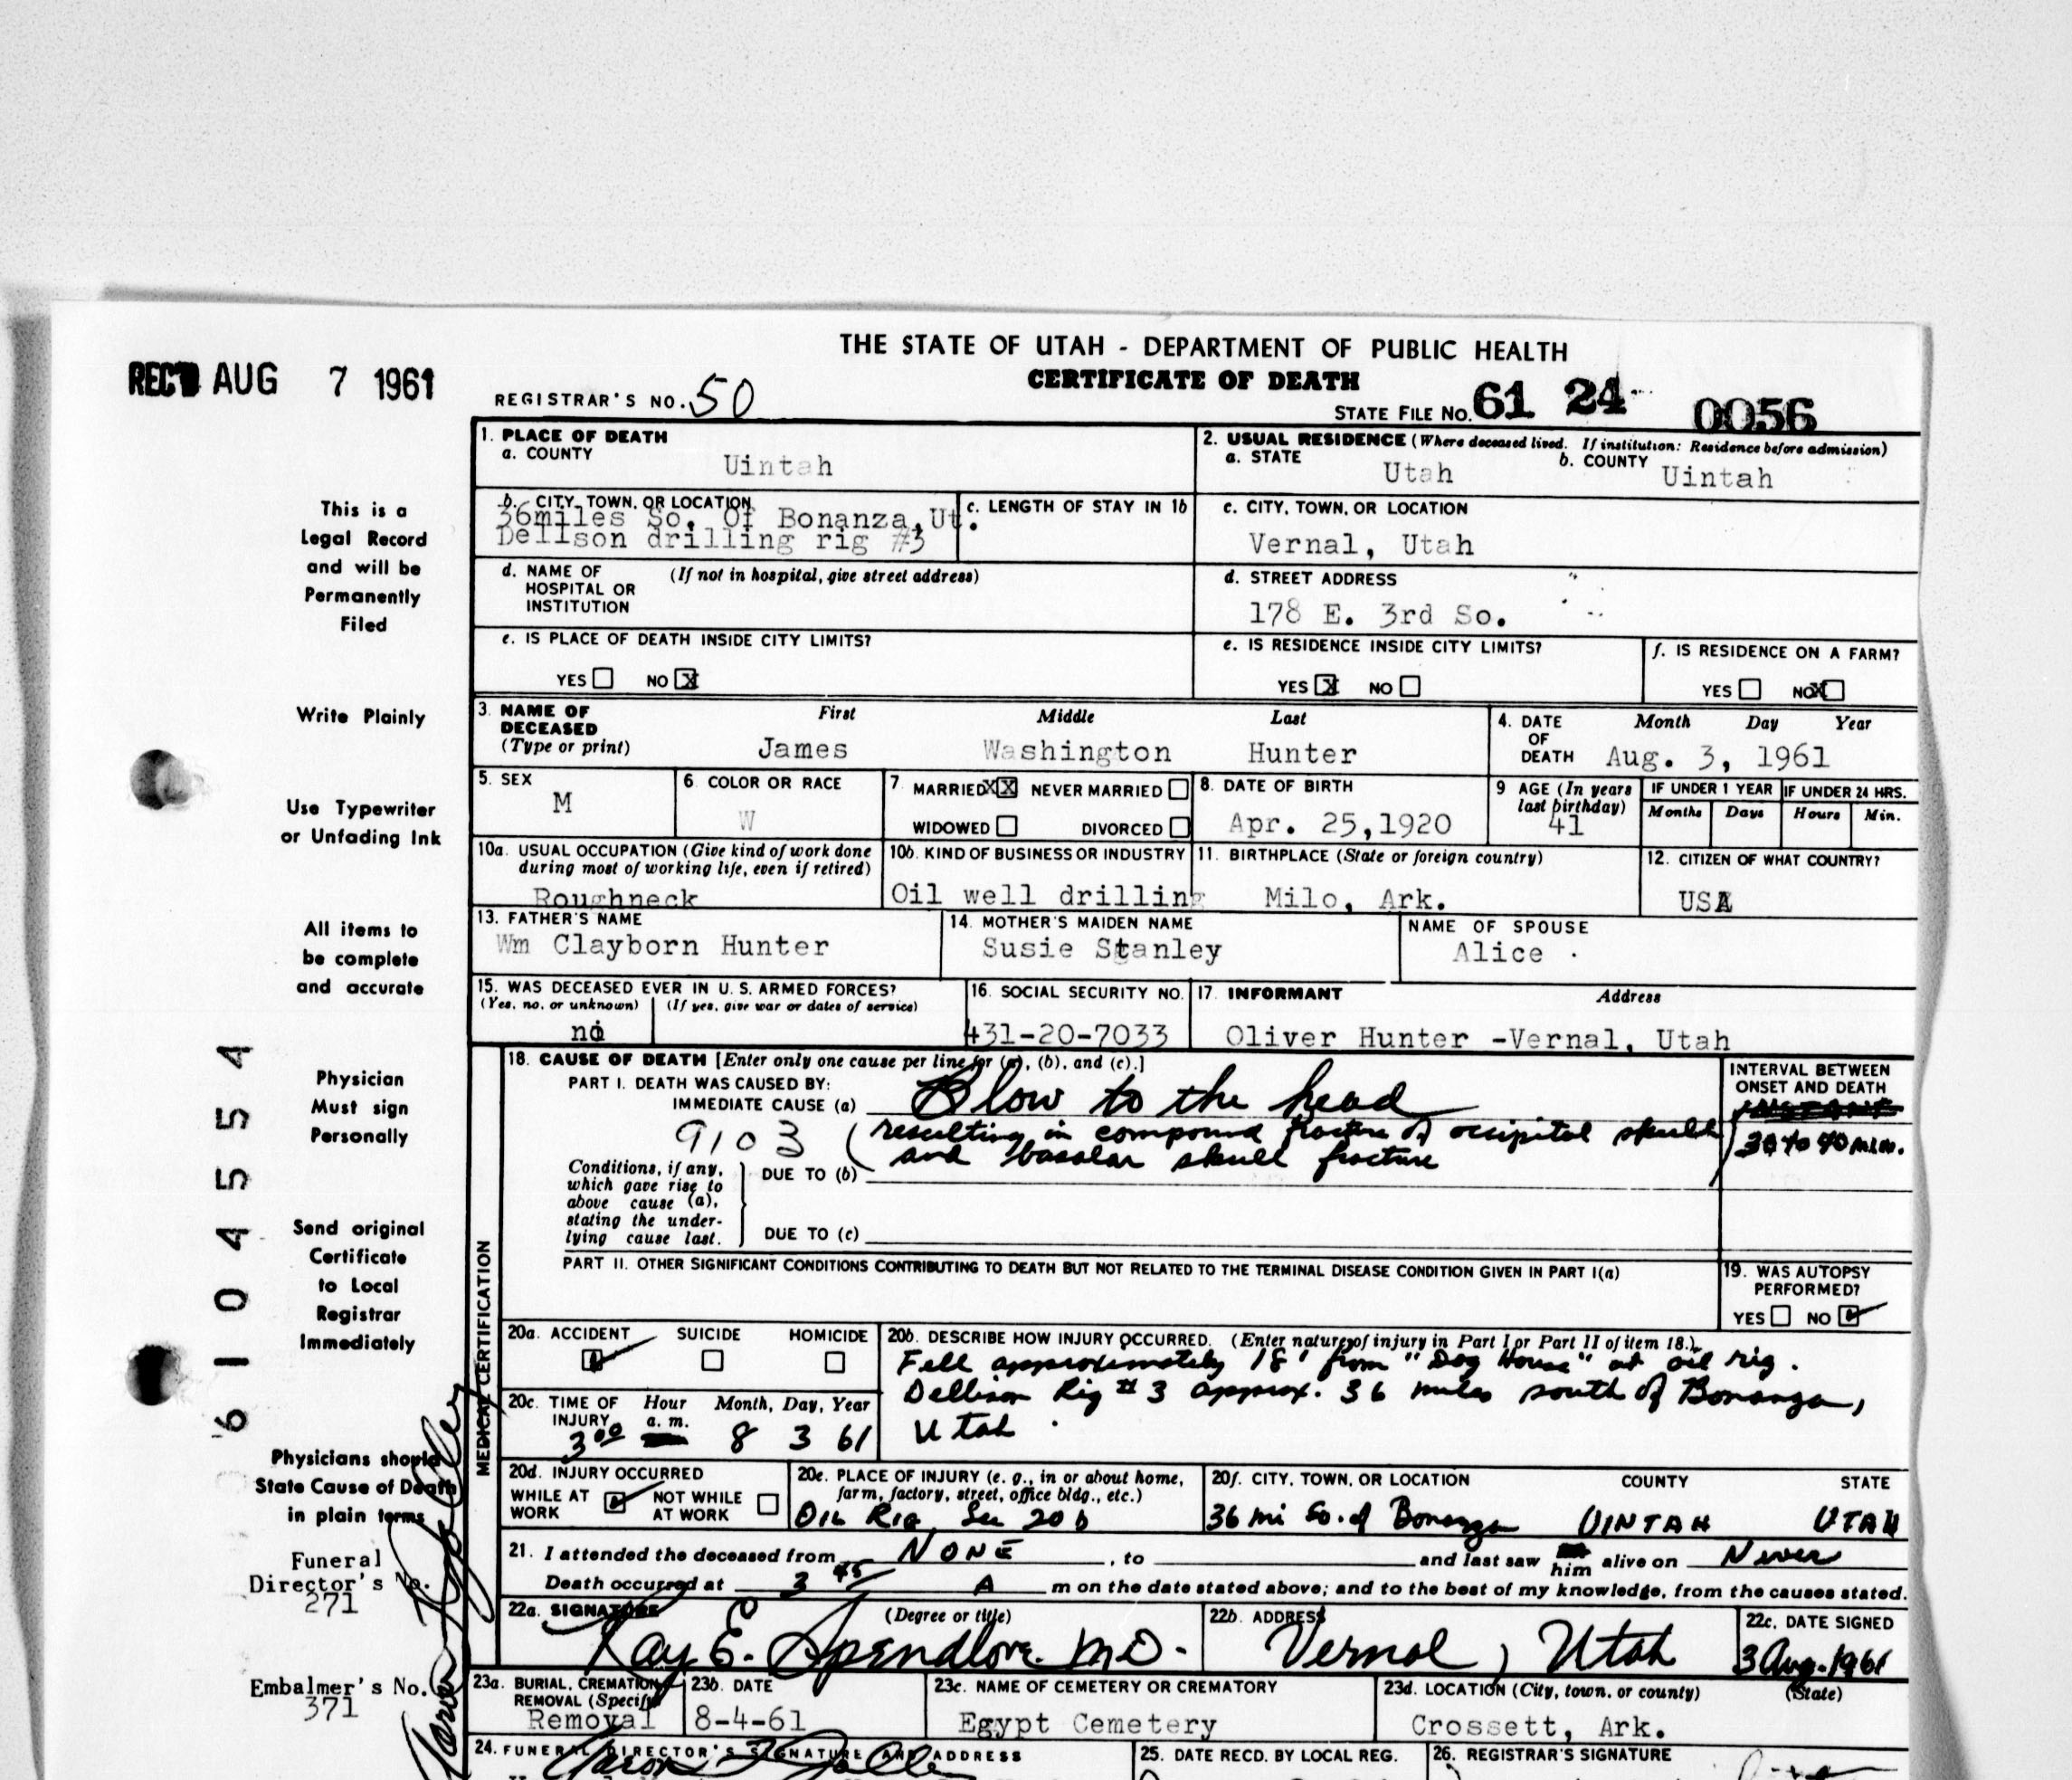 THE STATE OF UTAH - DEPARTMENT OF PUBLIC HEALTH
REC'D AUG 7 1961
CERTIFICATE OF DEATH
REGISTRAR'S NO. 50
STATE FILE NO. 61 24 0056
1. PLACE OF DEATH
a. COUNTY
Uintah
2. USUAL RESIDENCE (Where deceased lived. If institution: Residence before admission)
a. STATE Utah b. COUNTY Uintah
b. CITY, TOWN, OR LOCATION
36miles So. Of Bonanza,Ut.
Dellson drilling rig #3
c. LENGTH OF STAY IN 1b
c. CITY, TOWN, OR LOCATION
Vernal, Utah
d. NAME OF HOSPITAL OR INSTITUTION (If not in hospital, give street address)
d. STREET ADDRESS
178 E. 3rd So.
e. IS PLACE OF DEATH INSIDE CITY LIMITS?
YES NO X
e. IS RESIDENCE INSIDE CITY LIMITS?
YES X NO
f. IS RESIDENCE ON A FARM?
YES NO X
3. NAME OF DECEASED (Type or print)
First Middle Last
James Washington Hunter
4. DATE OF DEATH Month Day Year
Aug. 3, 1961
5. SEX
M
6. COLOR OR RACE
W
7 MARRIED XX NEVER MARRIED
WIDOWED DIVORCED
8. DATE OF BIRTH
Apr. 25,1920
9 AGE (In years last birthday)
41
IF UNDER 1 YEAR IF UNDER 24 HRS.
Months Days Hours Min.
10a. USUAL OCCUPATION (Give kind of work done during most of working life, even if retired)
Roughneck
10b. KIND OF BUSINESS OR INDUSTRY
Oil well drilling
11. BIRTHPLACE (State or foreign country)
Milo, Ark.
12. CITIZEN OF WHAT COUNTRY?
USA
13. FATHER'S NAME
Wm Clayborn Hunter
14. MOTHER'S MAIDEN NAME
Susie Stanley
NAME OF SPOUSE
Alice
15. WAS DECEASED EVER IN U. S. ARMED FORCES?
(Yes, no, or unknown) (If yes, give war or dates of service)
no
16. SOCIAL SECURITY NO.
431-20-7033
17. INFORMANT Address
Oliver Hunter -Vernal, Utah
MEDICAL CERTIFICATION
18. CAUSE OF DEATH [Enter only one cause per line for (a), (b), and (c).]
PART I. DEATH WAS CAUSED BY:
IMMEDIATE CAUSE (a) Blow to the head
9103
(resulting in compound fracture of occipital skull
and basalar skull fracture
Conditions, if any, which gave rise to above cause (a), stating the underlying cause last.
DUE TO (b)
DUE TO (c)
INTERVAL BETWEEN ONSET AND DEATH
30 to 40 min.
PART II. OTHER SIGNIFICANT CONDITIONS CONTRIBUTING TO DEATH BUT NOT RELATED TO THE TERMINAL DISEASE CONDITION GIVEN IN PART I(a)
19. WAS AUTOPSY PERFORMED?
YES NO ✓
20a. ACCIDENT SUICIDE HOMICIDE
20b. DESCRIBE HOW INJURY OCCURRED. (Enter nature of injury in Part I or Part II of item 18.)
Fell approximately 18' from "Dog House" at oil rig.
Dellison Rig #3 approx. 36 miles south of Bonanza,
Utah
20c. TIME OF INJURY Hour a. m. Month, Day, Year
3 00 8 3 61
20d. INJURY OCCURRED
WHILE AT WORK ✓ NOT WHILE AT WORK
20e. PLACE OF INJURY (e. g., in or about home, farm, factory, street, office bldg., etc.)
OIL RIG, See 20b
20f. CITY, TOWN, OR LOCATION COUNTY STATE
36 mi So. of Bonanza UINTAH UTAH
21. I attended the deceased from NONE, to and last saw him alive on Never
Death occurred at 3 45 A m on the date stated above; and to the best of my knowledge, from the causes stated.
22a. SIGNATURE (Degree or title)
Ray E. Spendlove MD.
22b. ADDRESS
Vernal, Utah
22c. DATE SIGNED
3 Aug. 1961
23a. BURIAL, CREMATION, REMOVAL (Specify)
Removal
23b. DATE
8-4-61
23c. NAME OF CEMETERY OR CREMATORY
Egypt Cemetery
23d. LOCATION (City, town, or county) (State)
Crossett, Ark.
24. FUNERAL DIRECTOR'S SIGNATURE AND ADDRESS
25. DATE RECD. BY LOCAL REG.
26. REGISTRAR'S SIGNATURE
This is a
Legal Record
and will be
Permanently
Filed
Write Plainly
Use Typewriter
or Unfading Ink
All items to
be complete
and accurate
Physician
Must sign
Personally
Send original
Certificate
to Local
Registrar
Immediately
Physicians should
State Cause of Death
in plain terms
Funeral
Director's No.
271
Embalmer's No.
371
6104554